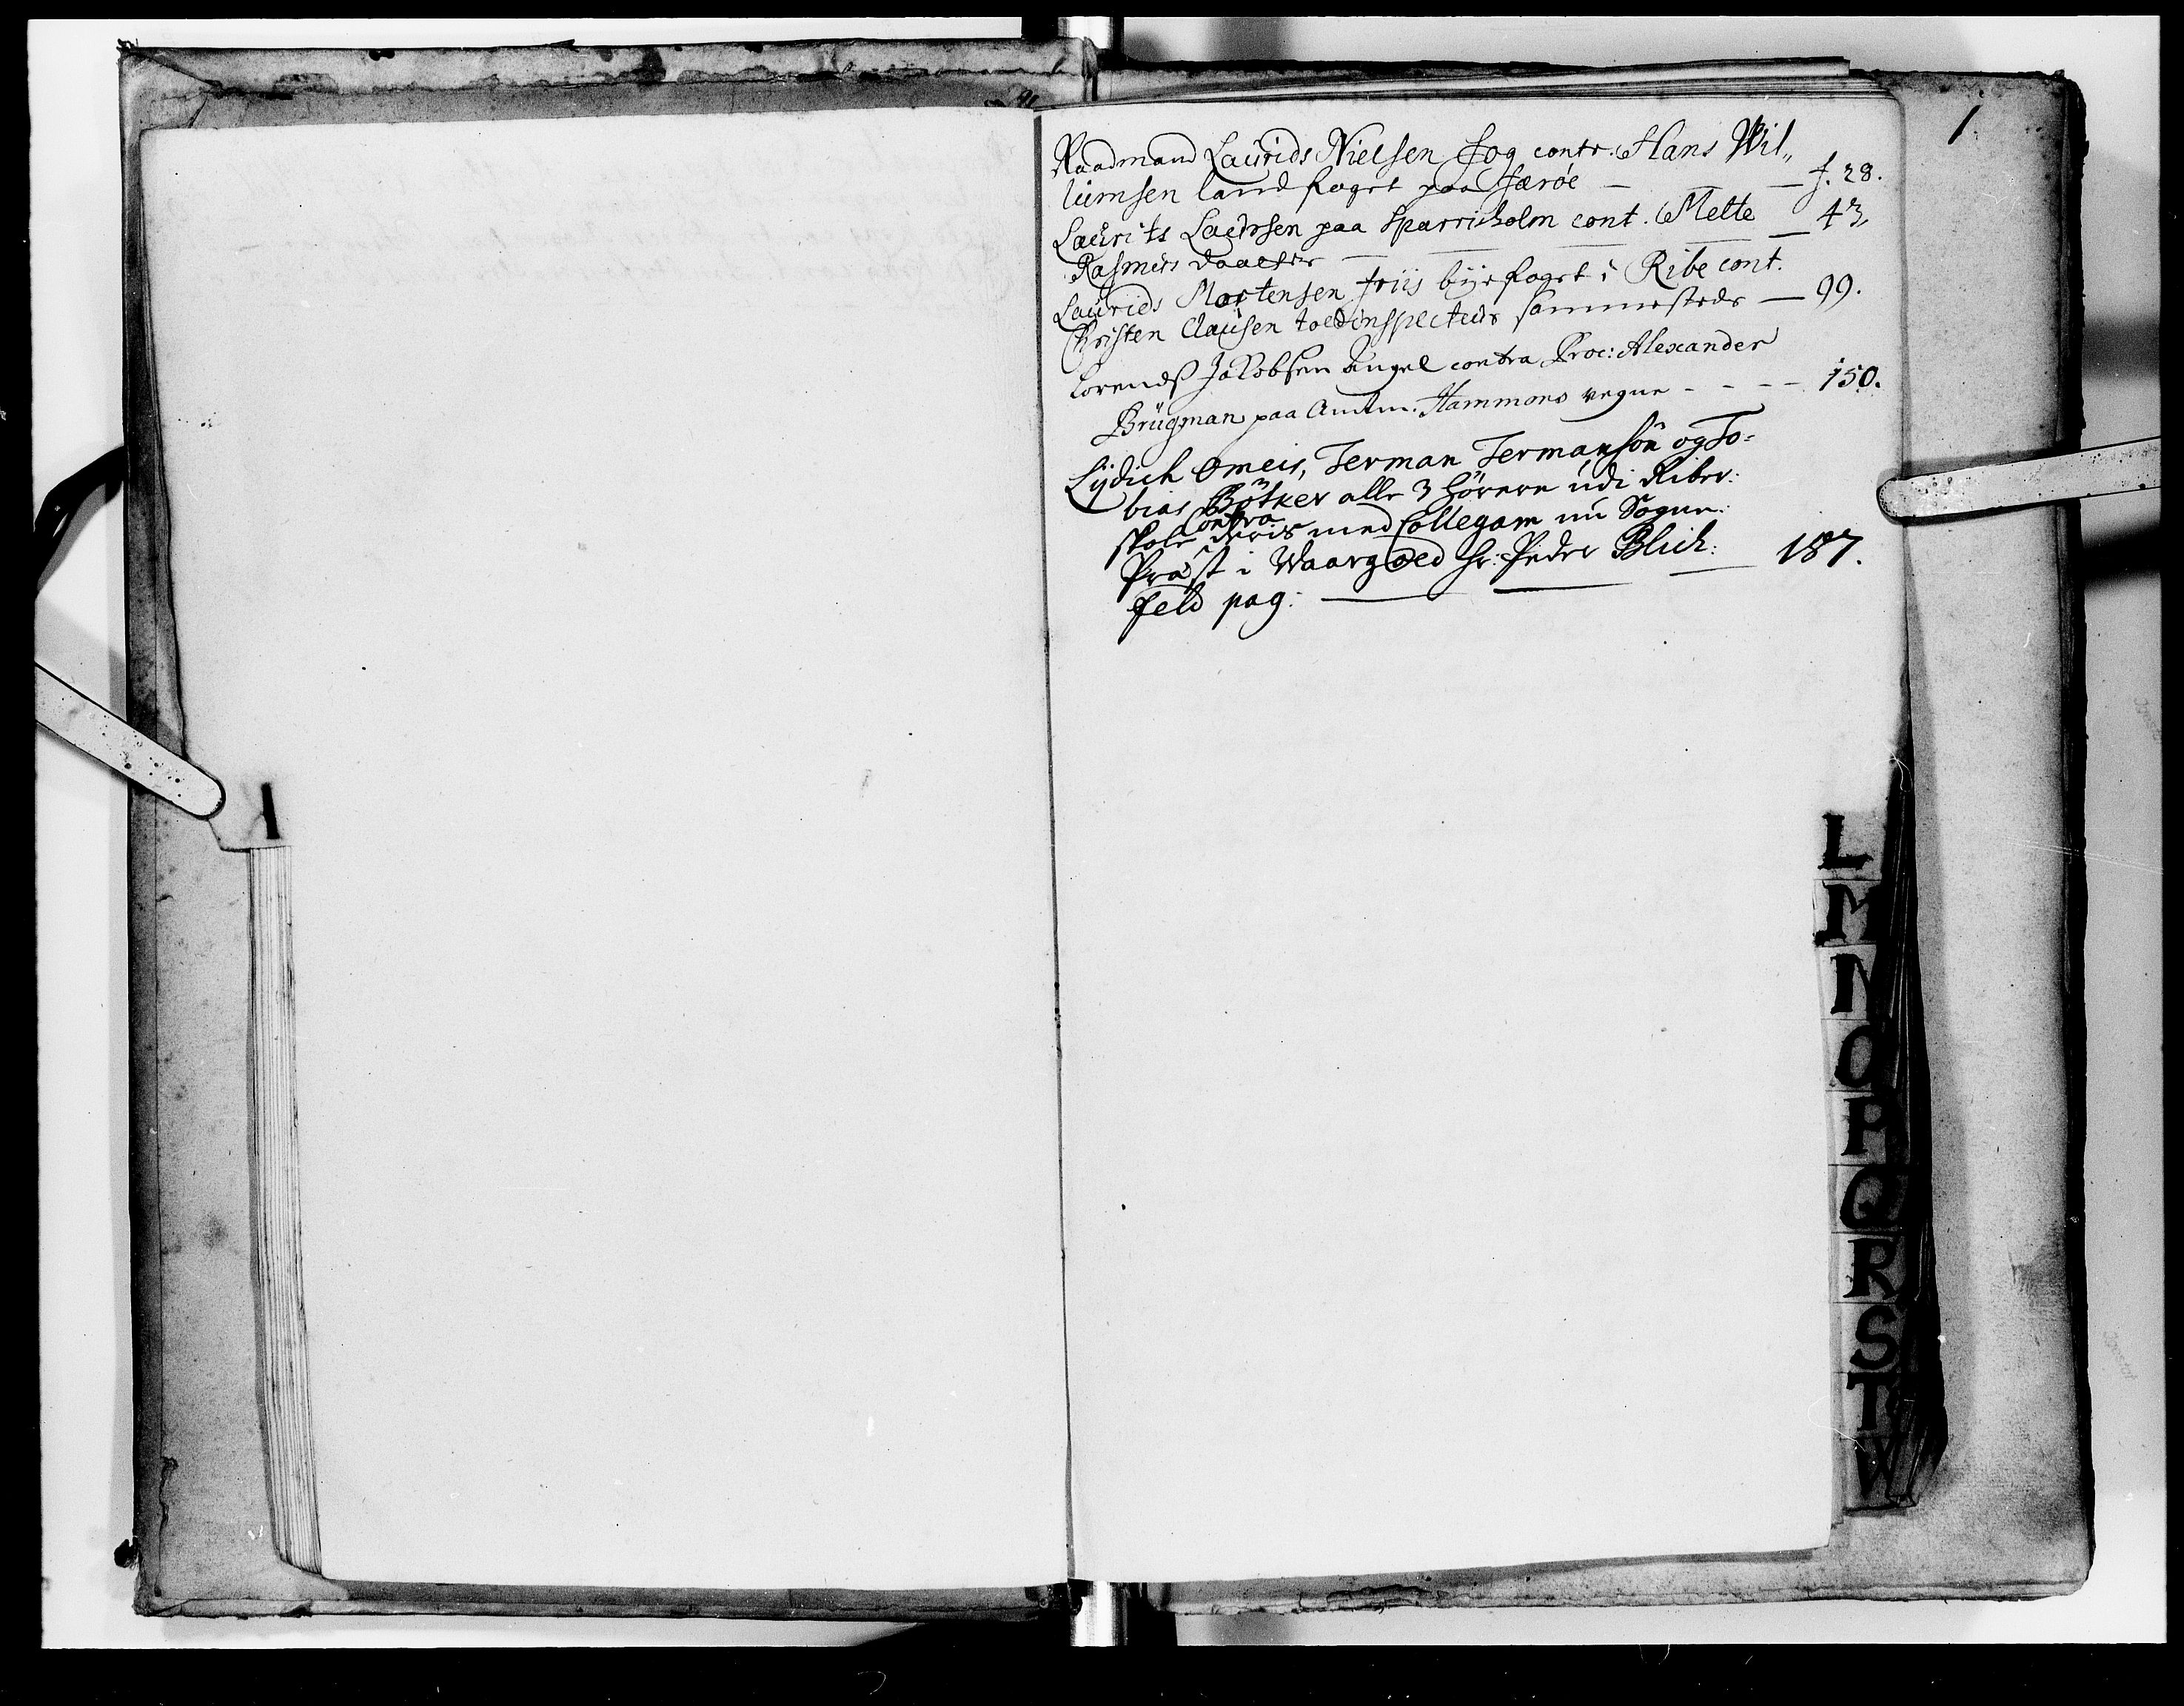 Raadmand Laurids Nielsen Fog contr. Hans Wil„
lumsen landfoget paa Færöe — — — f. 28.
Laurits Laursen paa Sparrisholm cont. Mette
Rasmus daatter — — — — 43,
Laurids Mortensen friis byefoget i Ribe cont.
Christen Clausen toldinspecteur sammesteds — 99.
Lorends Jacobsen Angel contra Proc: Alexander
Brügman paa Amtm. Hammons vegne - - - - 150.
Lydich Omeis, Terman Termansön og To=
bias Bötker alle 3 hörere udi Riber:
skole contra deris med Collegam nu Sogne:
Præst i Waargoed hr: Peder Blich:
feld pag: — — — 187.
1
K
L
M
N
O
P
Q
R
S
T
W